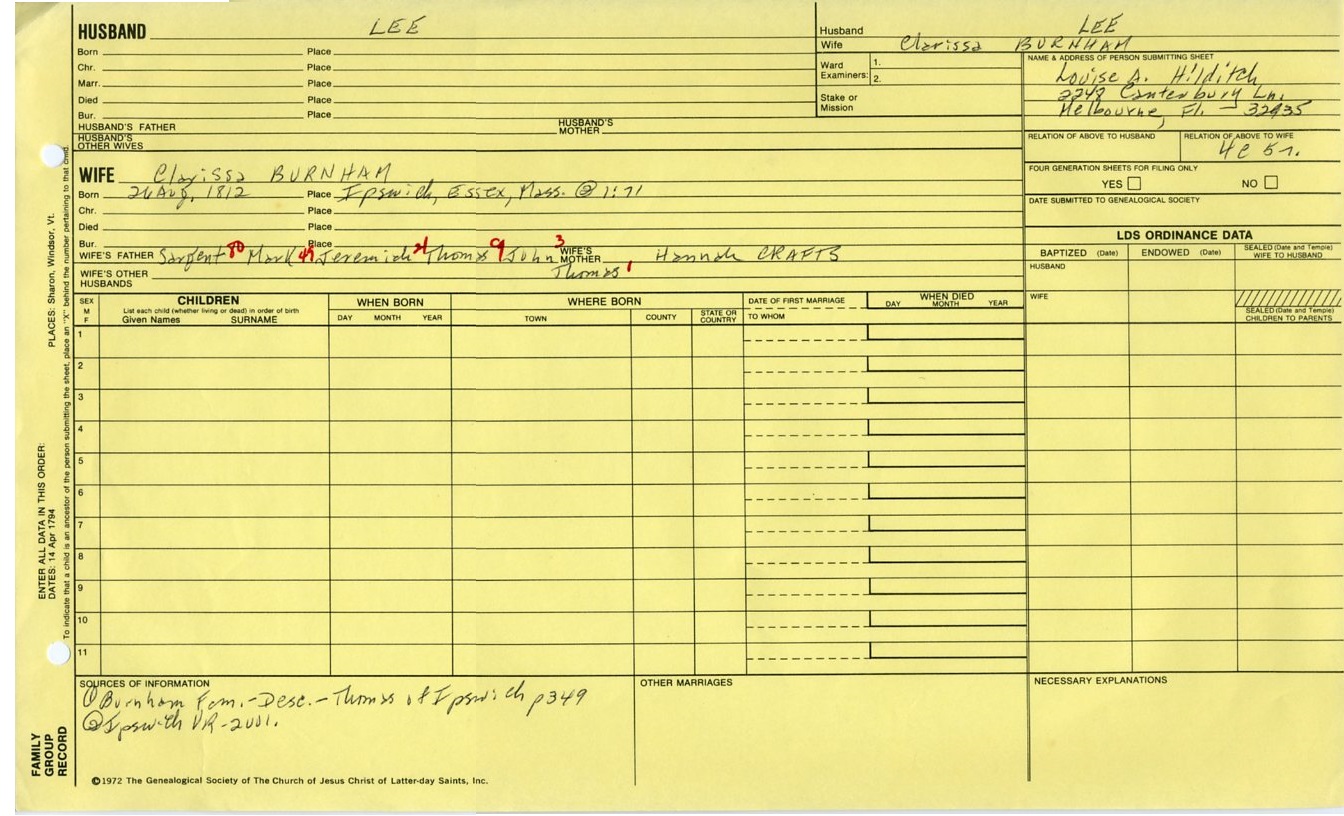 HUSBAND LEE
Born Place
Chr. Place
Marr. Place
Died Place
Bur. Place
HUSBAND'S FATHER HUSBAND'S MOTHER
HUSBAND'S OTHER WIVES
Husband LEE
Wife Clarissa BURNHAM
Ward Examiners: 1.
2.
Stake or Mission
NAME & ADDRESS OF PERSON SUBMITTING SHEET
Louise A. Hilditch
2248 Canterbury Ln.
Melbourne, Fl. - 32935
RELATION OF ABOVE TO HUSBAND RELATION OF ABOVE TO WIFE
4C 5r.
FOUR GENERATION SHEETS FOR FILING ONLY
YES NO
DATE SUBMITTED TO GENEALOGICAL SOCIETY
WIFE Clarissa BURNHAM
Born 26 Aug, 1812 Place Ipswich, Essex, Mass. @ 1:71
Chr. Place
Died Place
Bur. Place
WIFE'S FATHER Sargent 80 Mark 49 Jeremiah 21 Thomas 9 John 3 WIFE'S MOTHER Hannah CRAFTS
Thomas 1
WIFE'S OTHER HUSBANDS
LDS ORDINANCE DATA
BAPTIZED (Date) ENDOWED (Date) SEALED (Date and Temple) WIFE TO HUSBAND
HUSBAND
WIFE
SEALED (Date and Temple) CHILDREN TO PARENTS
SEX M F
CHILDREN
List each child (whether living or dead) in order of birth
Given Names SURNAME
WHEN BORN
DAY MONTH YEAR
WHERE BORN
TOWN COUNTY STATE OR COUNTRY
DATE OF FIRST MARRIAGE
TO WHOM
WHEN DIED
DAY MONTH YEAR
1
2
3
4
5
6
7
8
9
10
11
SOURCES OF INFORMATION
① Burnham Fam.-Desc.-Thomas of Ipswich p349
② Ipswith VR-2001.
OTHER MARRIAGES
NECESSARY EXPLANATIONS
©1972 The Genealogical Society of The Church of Jesus Christ of Latter-day Saints, Inc.
FAMILY GROUP RECORD
ENTER ALL DATA IN THIS ORDER:
DATES: 14 Apr 1794
PLACES: Sharon, Windsor, Vt.
To indicate that a child is an ancestor of the person submitting the sheet, place an "X" behind the number pertaining to that child.